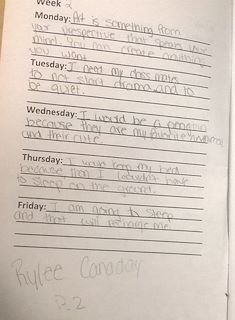 Week 2
Monday: Art is something from
your perspective that opens your
mind. You can create anything
you want.
Tuesday: I need my class mates
to not start drama and to
be quiet.
Wednesday: I would be a penguin
because they are my favorite animal
and their cute
Thursday: I would keep my bed
because then I wouldn't have
to sleep on the ground.
Friday: I am going to sleep
and that will recharge me
Rylee Canaday
P.2